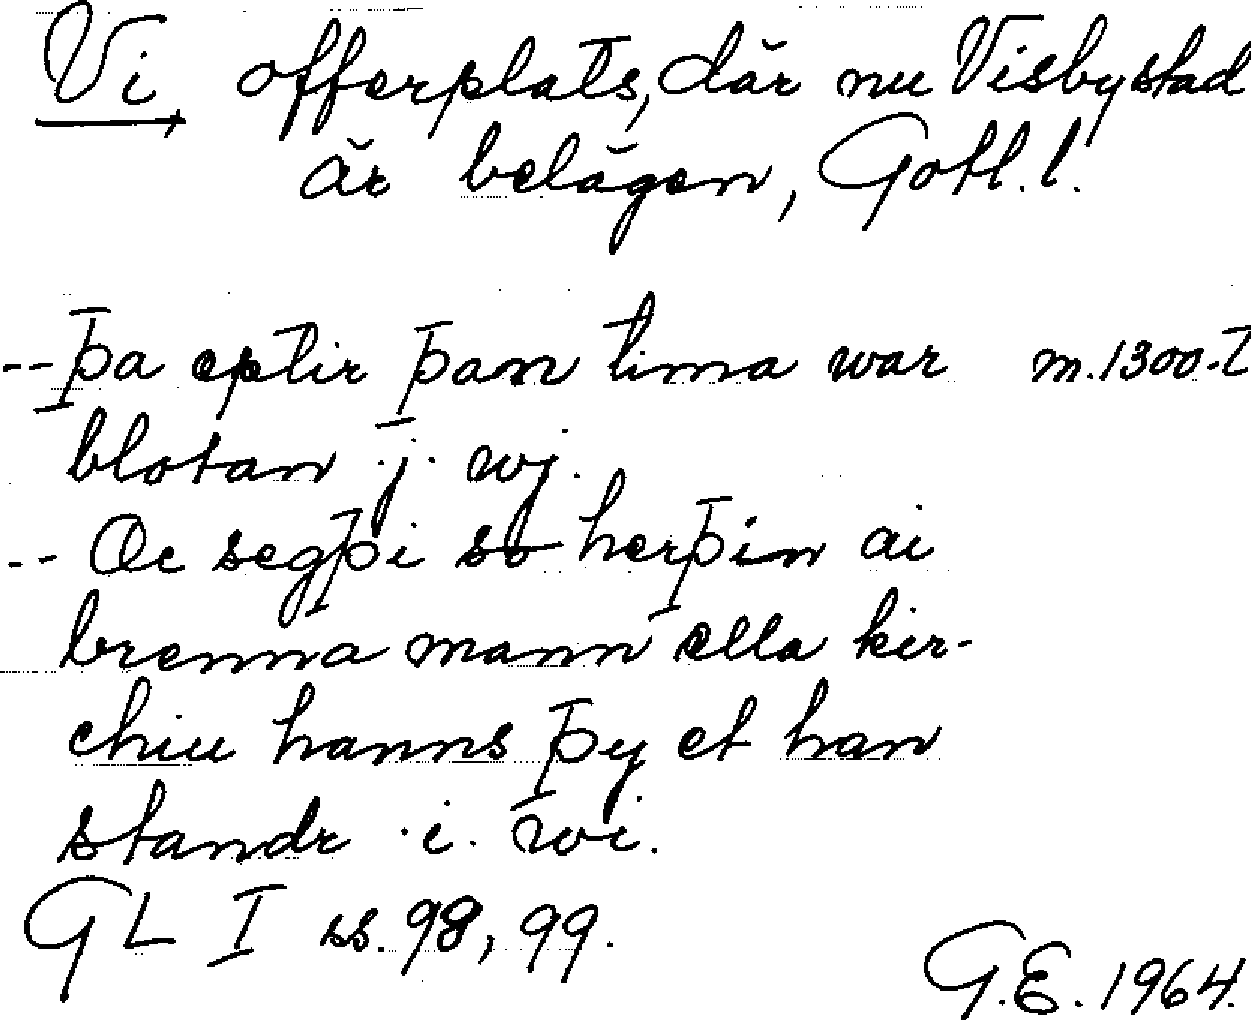 Vi, offerplats, där nu Visby stad
är belägen, Gotl. l.
-- Þa eptir þan tima war m. 1300-t
blotan .j. wj.
-- Oc segþi so herþin ai
brenna mann ella kir-
chiu hanns þy et han
standr .i. wi.
GL I ss. 98, 99.
G.E. 1964.